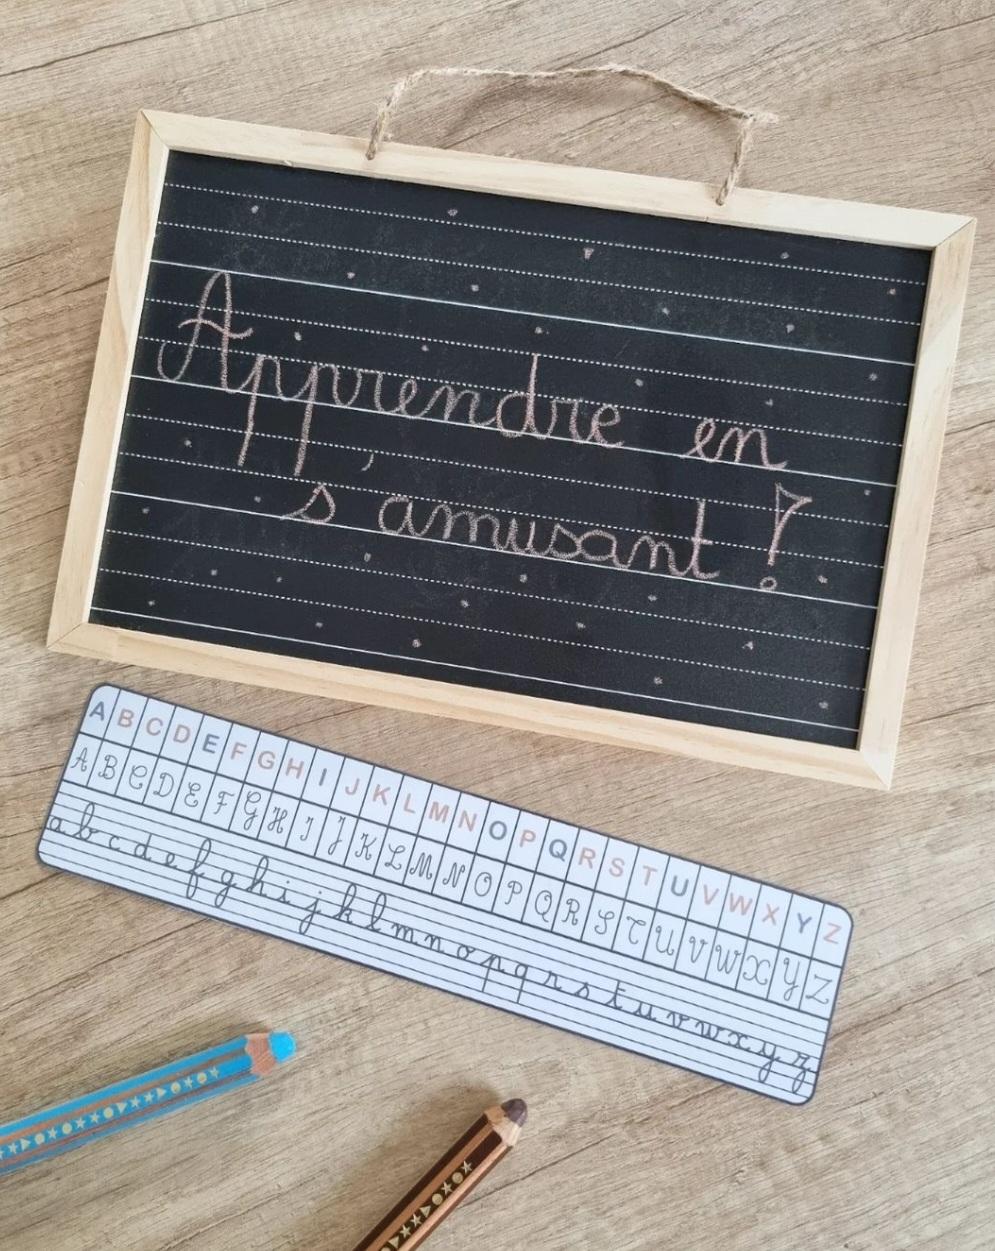 Apprendre en
s'amusant !
A B C D E F G H I J K L M N O P Q R S T U V W X Y Z
A B C D E F G H I J K L M N O P Q R S T U V W X Y Z
a b c d e f g h i j k l m n o p q r s t u v w x y z